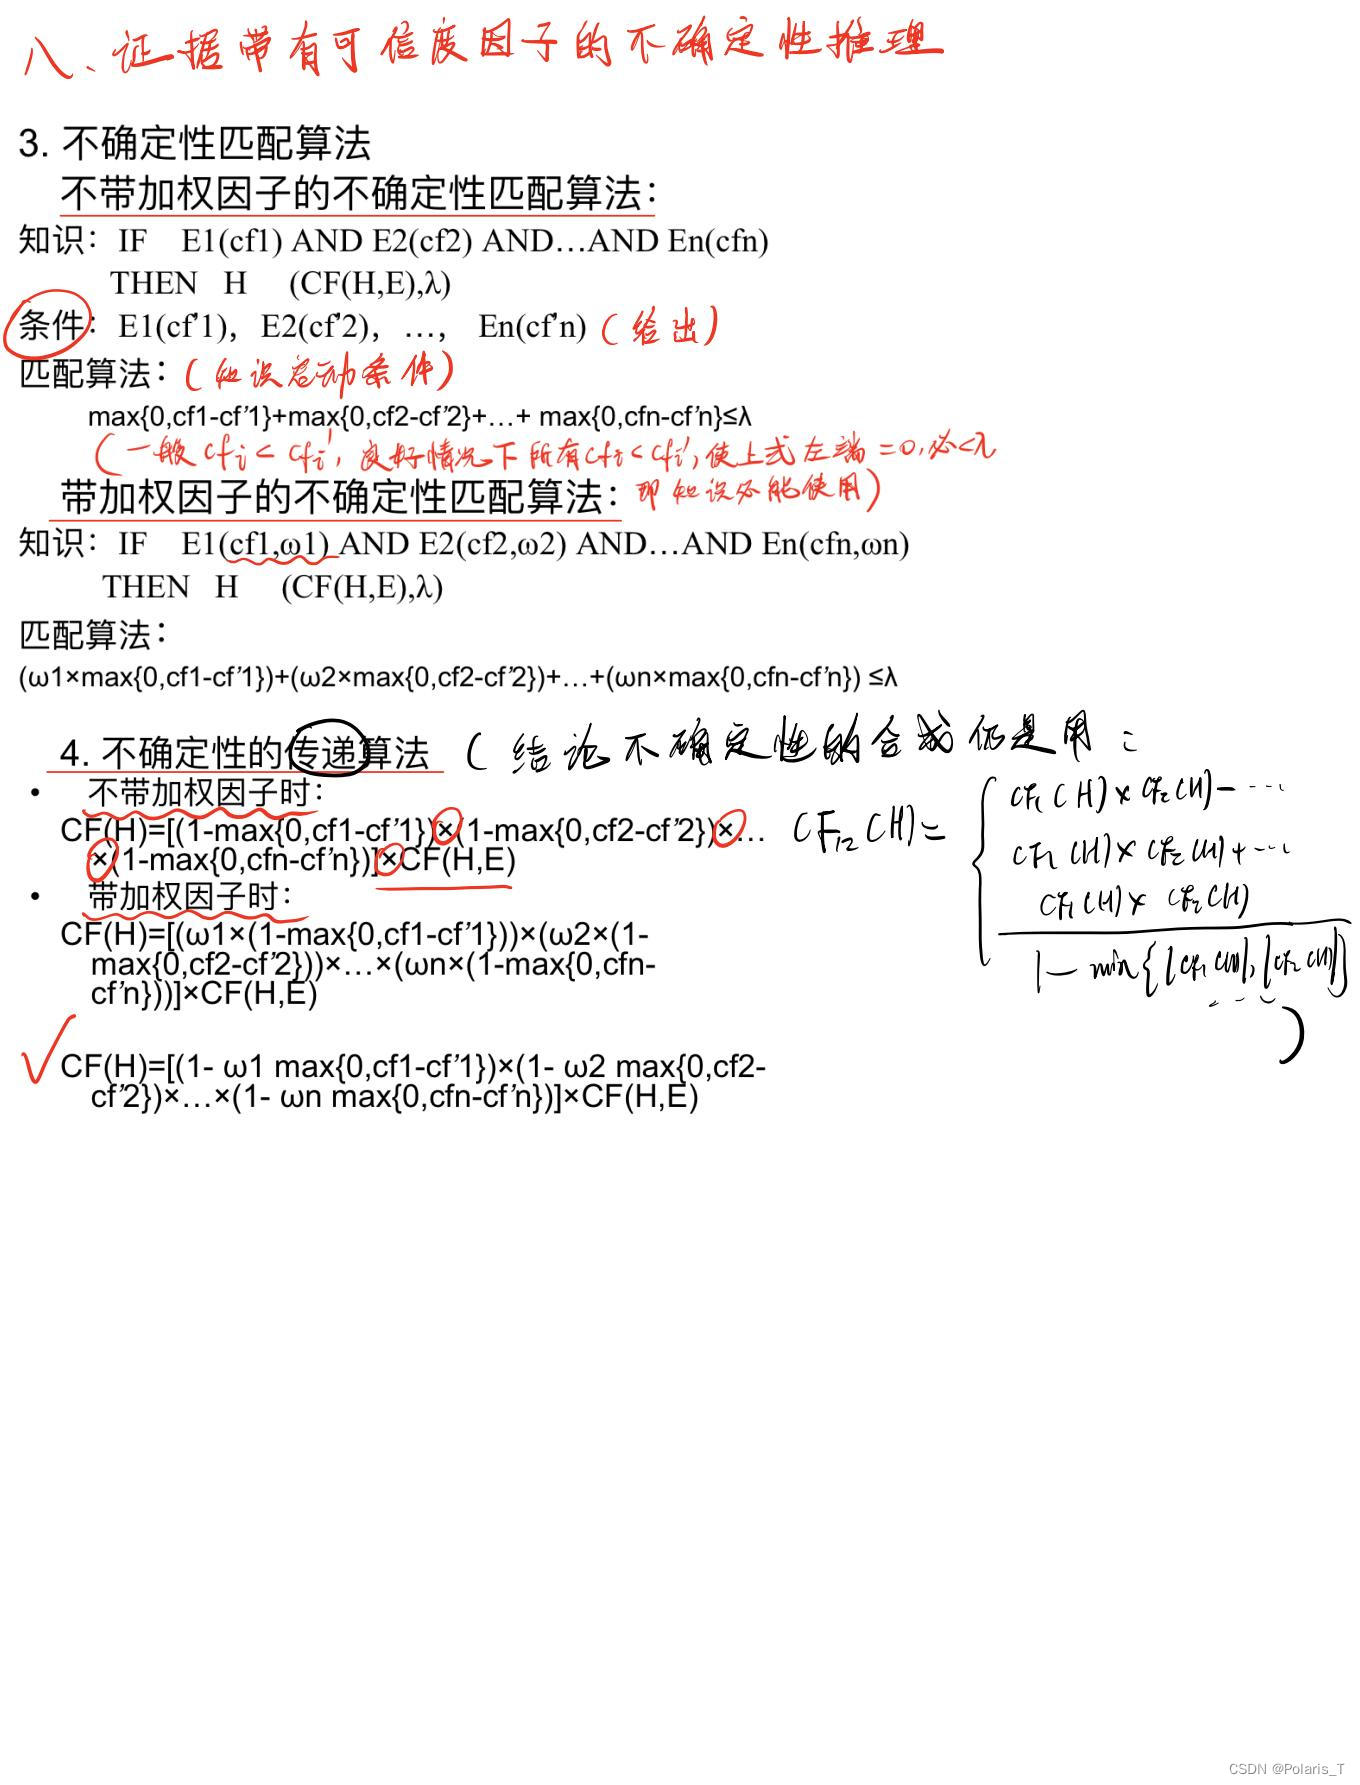 八、证据带有可信度因子的不确定性推理
3. 不确定性匹配算法
不带加权因子的不确定性匹配算法：
知识：IF E1(cf1) AND E2(cf2) AND…AND En(cfn)
THEN H (CF(H,E),λ)
条件：E1(cf'1)，E2(cf'2)，…， En(cf'n)（给出）
匹配算法：（知识启动条件）
max{0,cf1-cf'1}+max{0,cf2-cf'2}+…+ max{0,cfn-cf'n}≤λ
（一般cfi< cfi'，良好情况下所有cfi<cfi'，使上式左端=0，必<λ
带加权因子的不确定性匹配算法：即知识必能使用）
知识：IF E1(cf1,ω1) AND E2(cf2,ω2) AND…AND En(cfn,ωn)
THEN H (CF(H,E),λ)
匹配算法：
(ω1×max{0,cf1-cf'1})+(ω2×max{0,cf2-cf'2})+…+(ωn×max{0,cfn-cf'n}) ≤λ
4. 不确定性的传递算法（结论不确定性的合成仍是用：
• 不带加权因子时：
CF(H)=[(1-max{0,cf1-cf'1})×(1-max{0,cf2-cf'2})×…
×(1-max{0,cfn-cf'n})]×CF(H,E)
CF12(H)=
CF1(H)×CF2(H)-…
CF1(H)×CF2(H)+…
CF1(H)×CF2(H)
1-min{|CF1(H)|,|CF2(H)|}
）
• 带加权因子时：
CF(H)=[(ω1×(1-max{0,cf1-cf'1}))×(ω2×(1-
max{0,cf2-cf'2}))×…×(ωn×(1-max{0,cfn-
cf'n}))]×CF(H,E)
✓CF(H)=[(1- ω1 max{0,cf1-cf'1})×(1- ω2 max{0,cf2-
cf'2})×…×(1- ωn max{0,cfn-cf'n})]×CF(H,E)
CSDN @Polaris_T